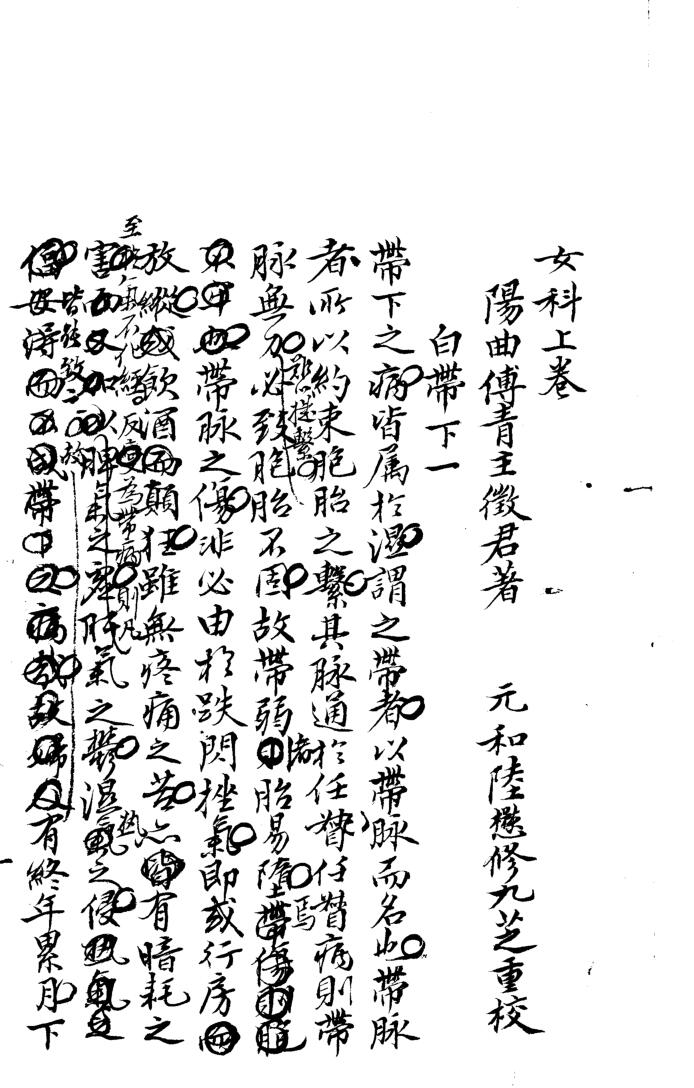 女科上卷
陽曲傅青主徵君著　元和陸懋修九芝重校
白帶下一
帶下之病皆屬於濕謂之帶者以帶脉而名也帶脉
者所以約束胞胎之繫其脉通於任督任督病則帶
脉無力必致胞胎不固故帶弱者胎易墮焉帶傷則胎
提繫
不牢也帶脉之傷非必由於跌閃挫氣即或行房而
放縱或飲酒而顛狂雖無疼痛之苦亦皆有暗耗之
氣不化經反變為帶病則凡
害而又加以脾氣之虛肝氣之鬱濕氣之侵熱氣
熱
皆能致之故
帶下之病或故婦人有終年累月下